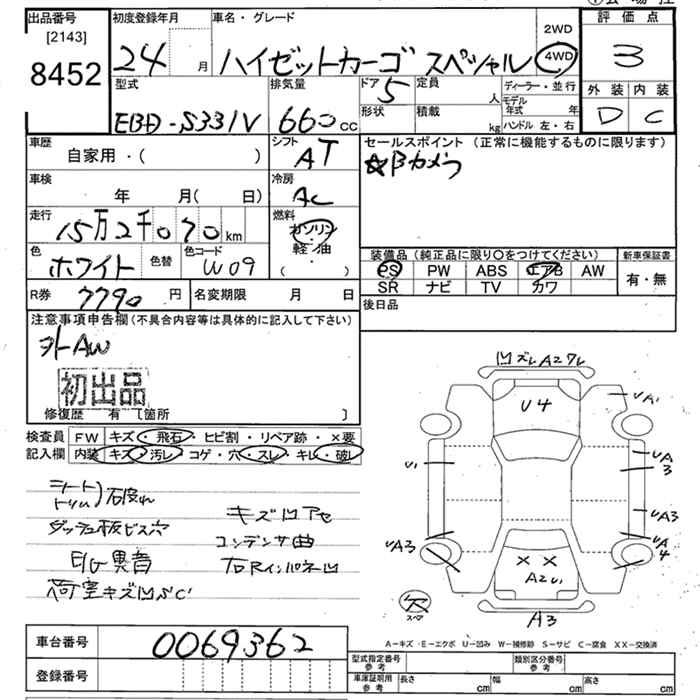 出品番号 初度登録年月 車名・グレード 2WD 評価点
[2143]
8452
24 月 ハイゼットカーゴ スペシャル 4WD 3
型式 排気量 ドア 定員 ディーラー・並行 外装 内装
EBD-S331V 660 cc 5 人 モデル年式 年 D C
形状 積載 kg ハンドル 左・右
車歴 シフト セールスポイント (正常に機能するものに限ります)
自家用・( ) AT ☆Bカメラ
車検 冷房
年 月( 日) AC
走行 燃料
15万2千070 km ガソリン
軽・油
( )
色 色替 色コード 装備品 (純正品に限り○をつけてください) 新車保証書
ホワイト W09 PS PW ABS エアB AW 有・無
SR ナビ TV カワ
R券 7790 円 名変期限 月 日 後日品
注意事項申告欄 (不具合内容等は具体的に記入して下さい)
外AW
初出品
修復歴 有 [箇所 ]
検査員 FW キズ・飛石・ヒビ割・リペア跡・×要
記入欄 内装 キズ・汚レ・コゲ・穴・スレ・キレ・破レ
シート
トリム) 破れ
ダッシュ板ビス穴
E/G異音
荷室キズ凹SC
キズ凹アセ
コンデンサ曲
右Rインパネ凹
凹ズレA2ワレ
U4
UA1
U1
UA3
UA3
UA3
UA4
××
A2U1
欠
スペア
A3
A-キズ・E-エクボ U-凹み W-補修跡 S-サビ C-腐食 XX-交換済
車台番号 0069362
登録番号
型式指定番号 参考 類別区分番号 参考
車庫証明用 参考 長さ cm 幅 cm 高さ cm